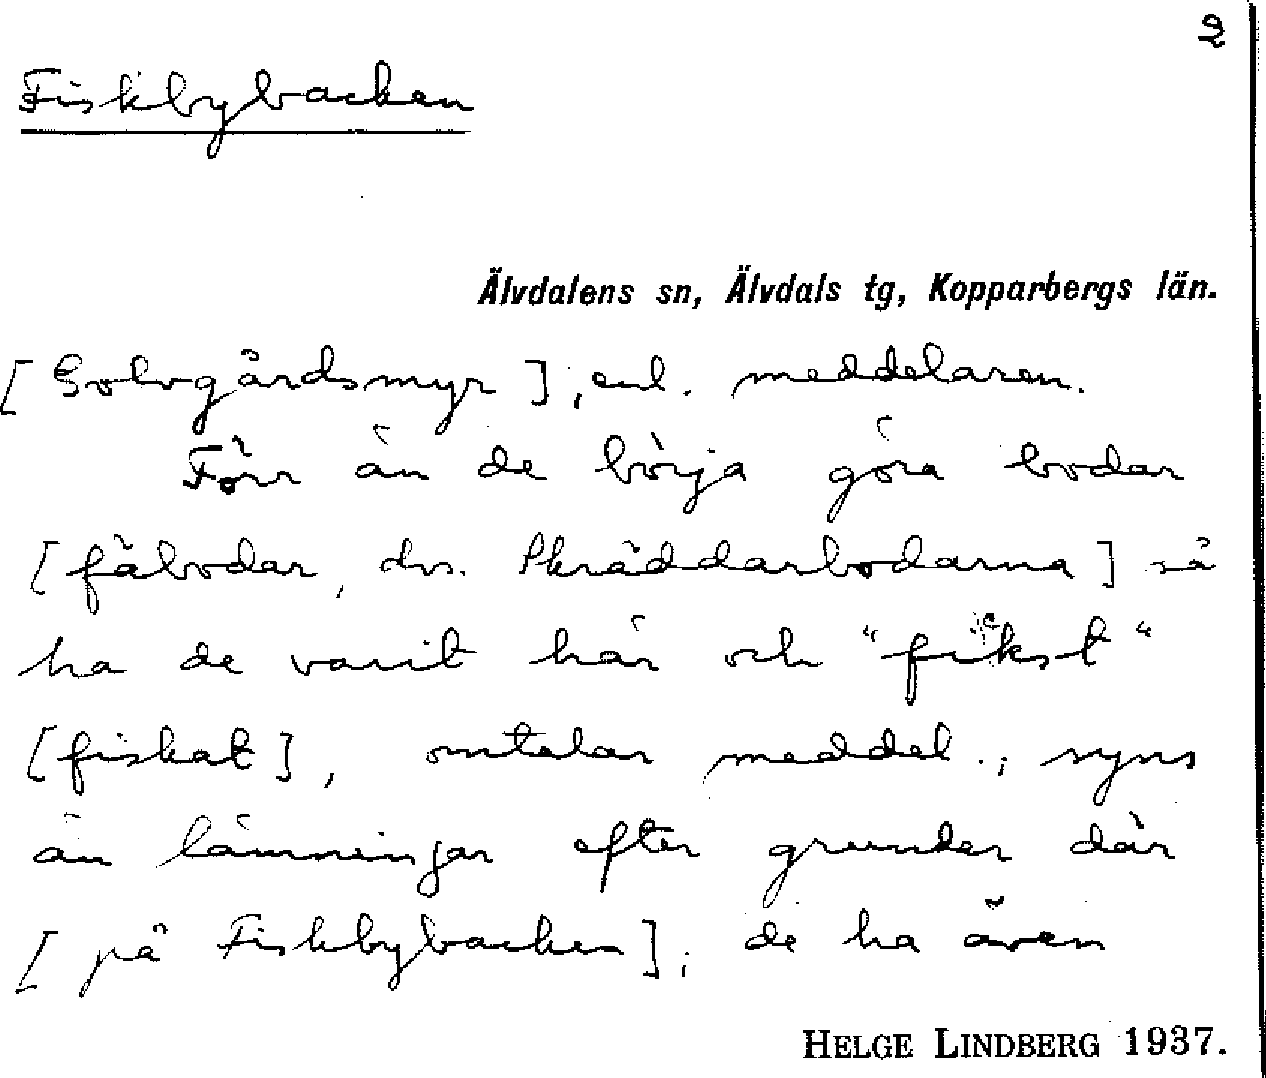 2
Fiskbybacken
Älvdalens sn, Älvdals tg, Kopparbergs län.
[Solvgårdsmyr], enl. meddelaren.
Förr än de börja göra bodar
[fäbodar, dvs. Skräddarbodarna] så
ha de varit här och "fikst"
[fiskat], omtalar meddel.; syns
än lämningar efter grunder där
[på Fiskbybacken]; de ha även
HELGE LINDBERG 1937.